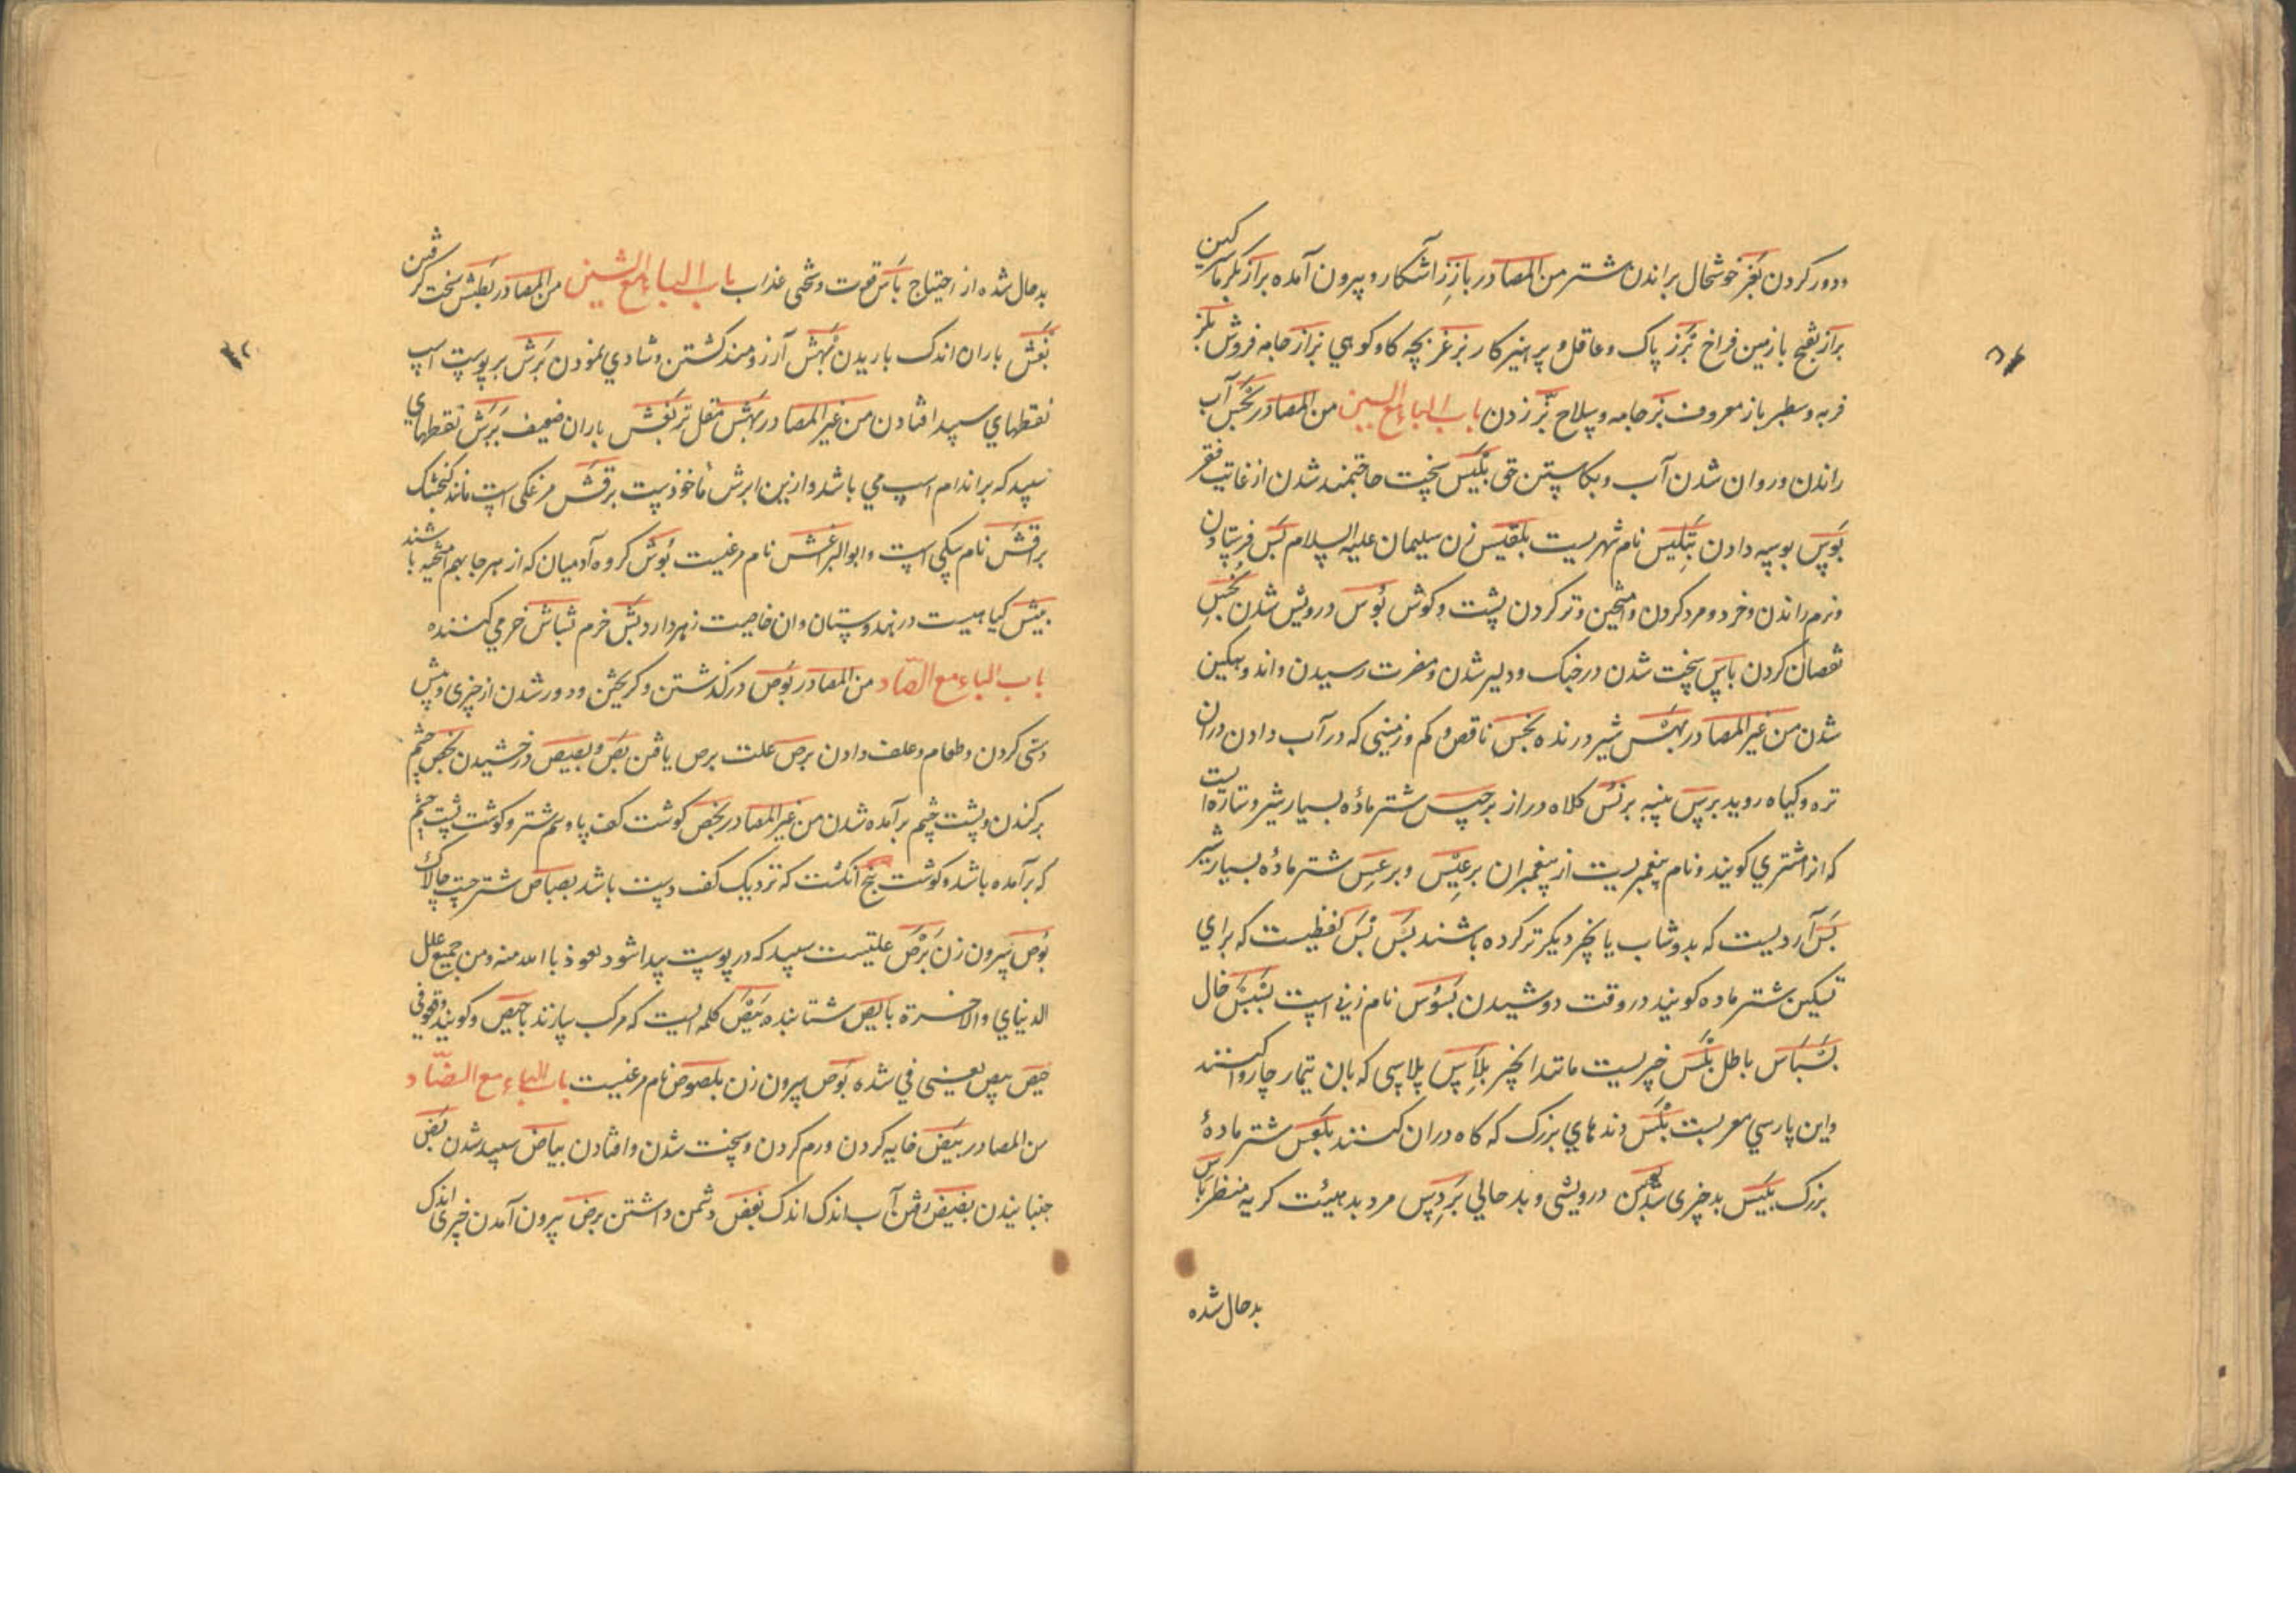 ودور کردن بغز خوشحال براندن شتر من المصادر بارز آشکار و بیرون آمده براز بکر سرکین
براز بفتح با زمین فراخ برز پاک وعاقل و پرهیزکار برغز بچه کاو کوهي بزاز جامه فروش بلز
فربه وسطبر باز معروف بز جامه وسلاح بز زدن باب الباء مع السین من المصادر بجس آب
راندن وروان شدن آب وبکاستن حق بئیس سخت حاجتمند شدن از غایت فقر
بوس بوسه دادن بتلیس نام شهریست بلقیس زن سلیمان علیه السلام بس فرستادن
ونرم راندن وخرد و مرد کردن وآمیختن وتر کردن پشت و کوش بؤس درویش شدن بخس
نقصان کردن باس سخت شدن در جنک ودلیر شدن ومضرت رسیدن واندوهکین
شدن من غیر المصادر بهنس شیر درنده بخس ناقص و کم وزمینی که در آب دادن دران
تره وکیاه روید برس پنبه برنس کلاه دراز برجیس شتر ماده بسیار شیر وستاره است
که انرا مشتري کویند ونام پیغمبریست از پیغمبران برعیس وبرعس شتر ماده بسیار شیر
بس آردیست که بدوشاب یا بچیز دیکر تر کرده باشند بس بس لفظیست که براي
تسکین شتر ماده کویند در وقت دوشیدن بسوس نام زني است بسبس خال
بسباس باطل بلس چیزیست مانند انجیر بلاس پلاسی که بان تیمار چاروا کنند
واین پارسي معربست بلس دندهاي بزرک که کاه دران کنند بلعس شتر مادهٔ
بزرک بئیس بد چیزی شدن درویشی وبد حالي بردس مرد بد هیئت کریه منظر بائس
بد حال شده
۴۲
بدحال شده از احتیاج باس قوت وسختی عذاب باب الباء مع الشین من المصادر بطش سخت کرفتن
بغش باران اندک باریدن بهش آرزومند کشتن وشادي نمودن برش بر پوست اسپ
نقطهاي سپید افتادن من غیر المصادر بهش مقل تر بغش باران ضعیف برش نقطهاي
سپید که بر اندام اسپ مي باشد وازین ابرش مأخوذست برقش مرغکی است مانند کنجشک
براقش نام سکی است وابو البراقش نام مرغیست بوش کروه آدمیان که از هر جا بهم آمیخته باشند
بیش کیاهیست در هندوستان وان خاصیت زهر دارد بش خرم بشاش خرمي کننده
باب الباء مع الصاد من المصادر بوص در کذشتن وکریختن ودور شدن از چیزی وپیش
دستی کردن وطعام وعلف دادن برص علت برص یافتن بص وبصیص درخشیدن بخص چشم
برکندن وپشت چشم بر آمده شدن من غیر المصادر بخص کوشت کف پا وسم شتر وکوشت پشت چشم
که بر آمده باشد وکوشت بیخ انکشت که نزدیک کف دست باشد بصباص شتر چست چالاک
بوص سرون زن برص علتیست سپید که در پوست پیدا شود نعوذ با الله منه ومن جمیع علل
الدنیاي والاخرة بایص شتابنده بیص کلمه ایست که مرکب سازند با حیص وکویند وقعوا في
حیص بیص یعنی في شده بوص سرون زن بلصوص نام مرغیست باب الباء مع الضاد
من المصادر بیض خایه کردن ورم کردن وسخت شدن وافتادن بیاض سپید شدن نض
جنبانیدن بضیض رفتن آب اندک اندک بغض دشمن داشتن برض بیرون آمدن چیزی اندک